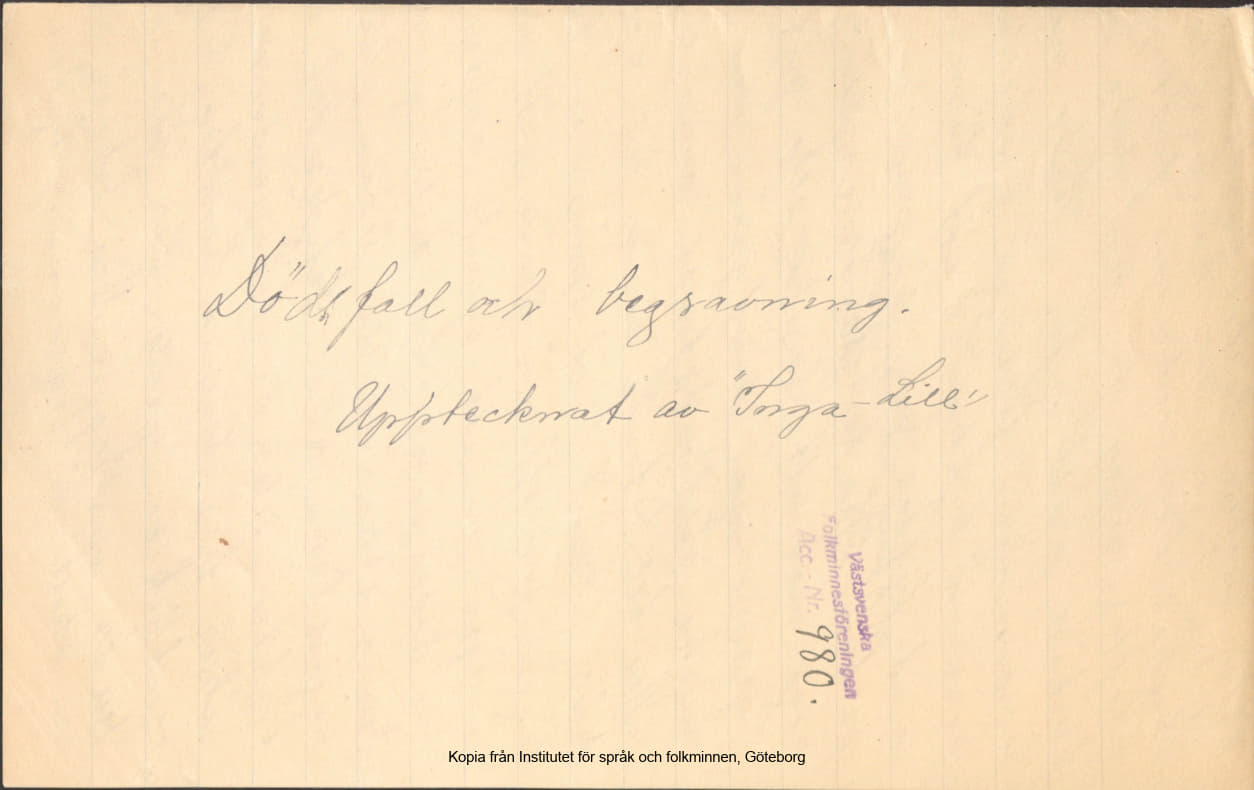 Dödsfall och begravning.
Upptecknat av "Inga-Lill"
Västsvenska
Folkminnesföreningen
Acc.-Nr. 980.
Kopia från Institutet för språk och folkminnen, Göteborg